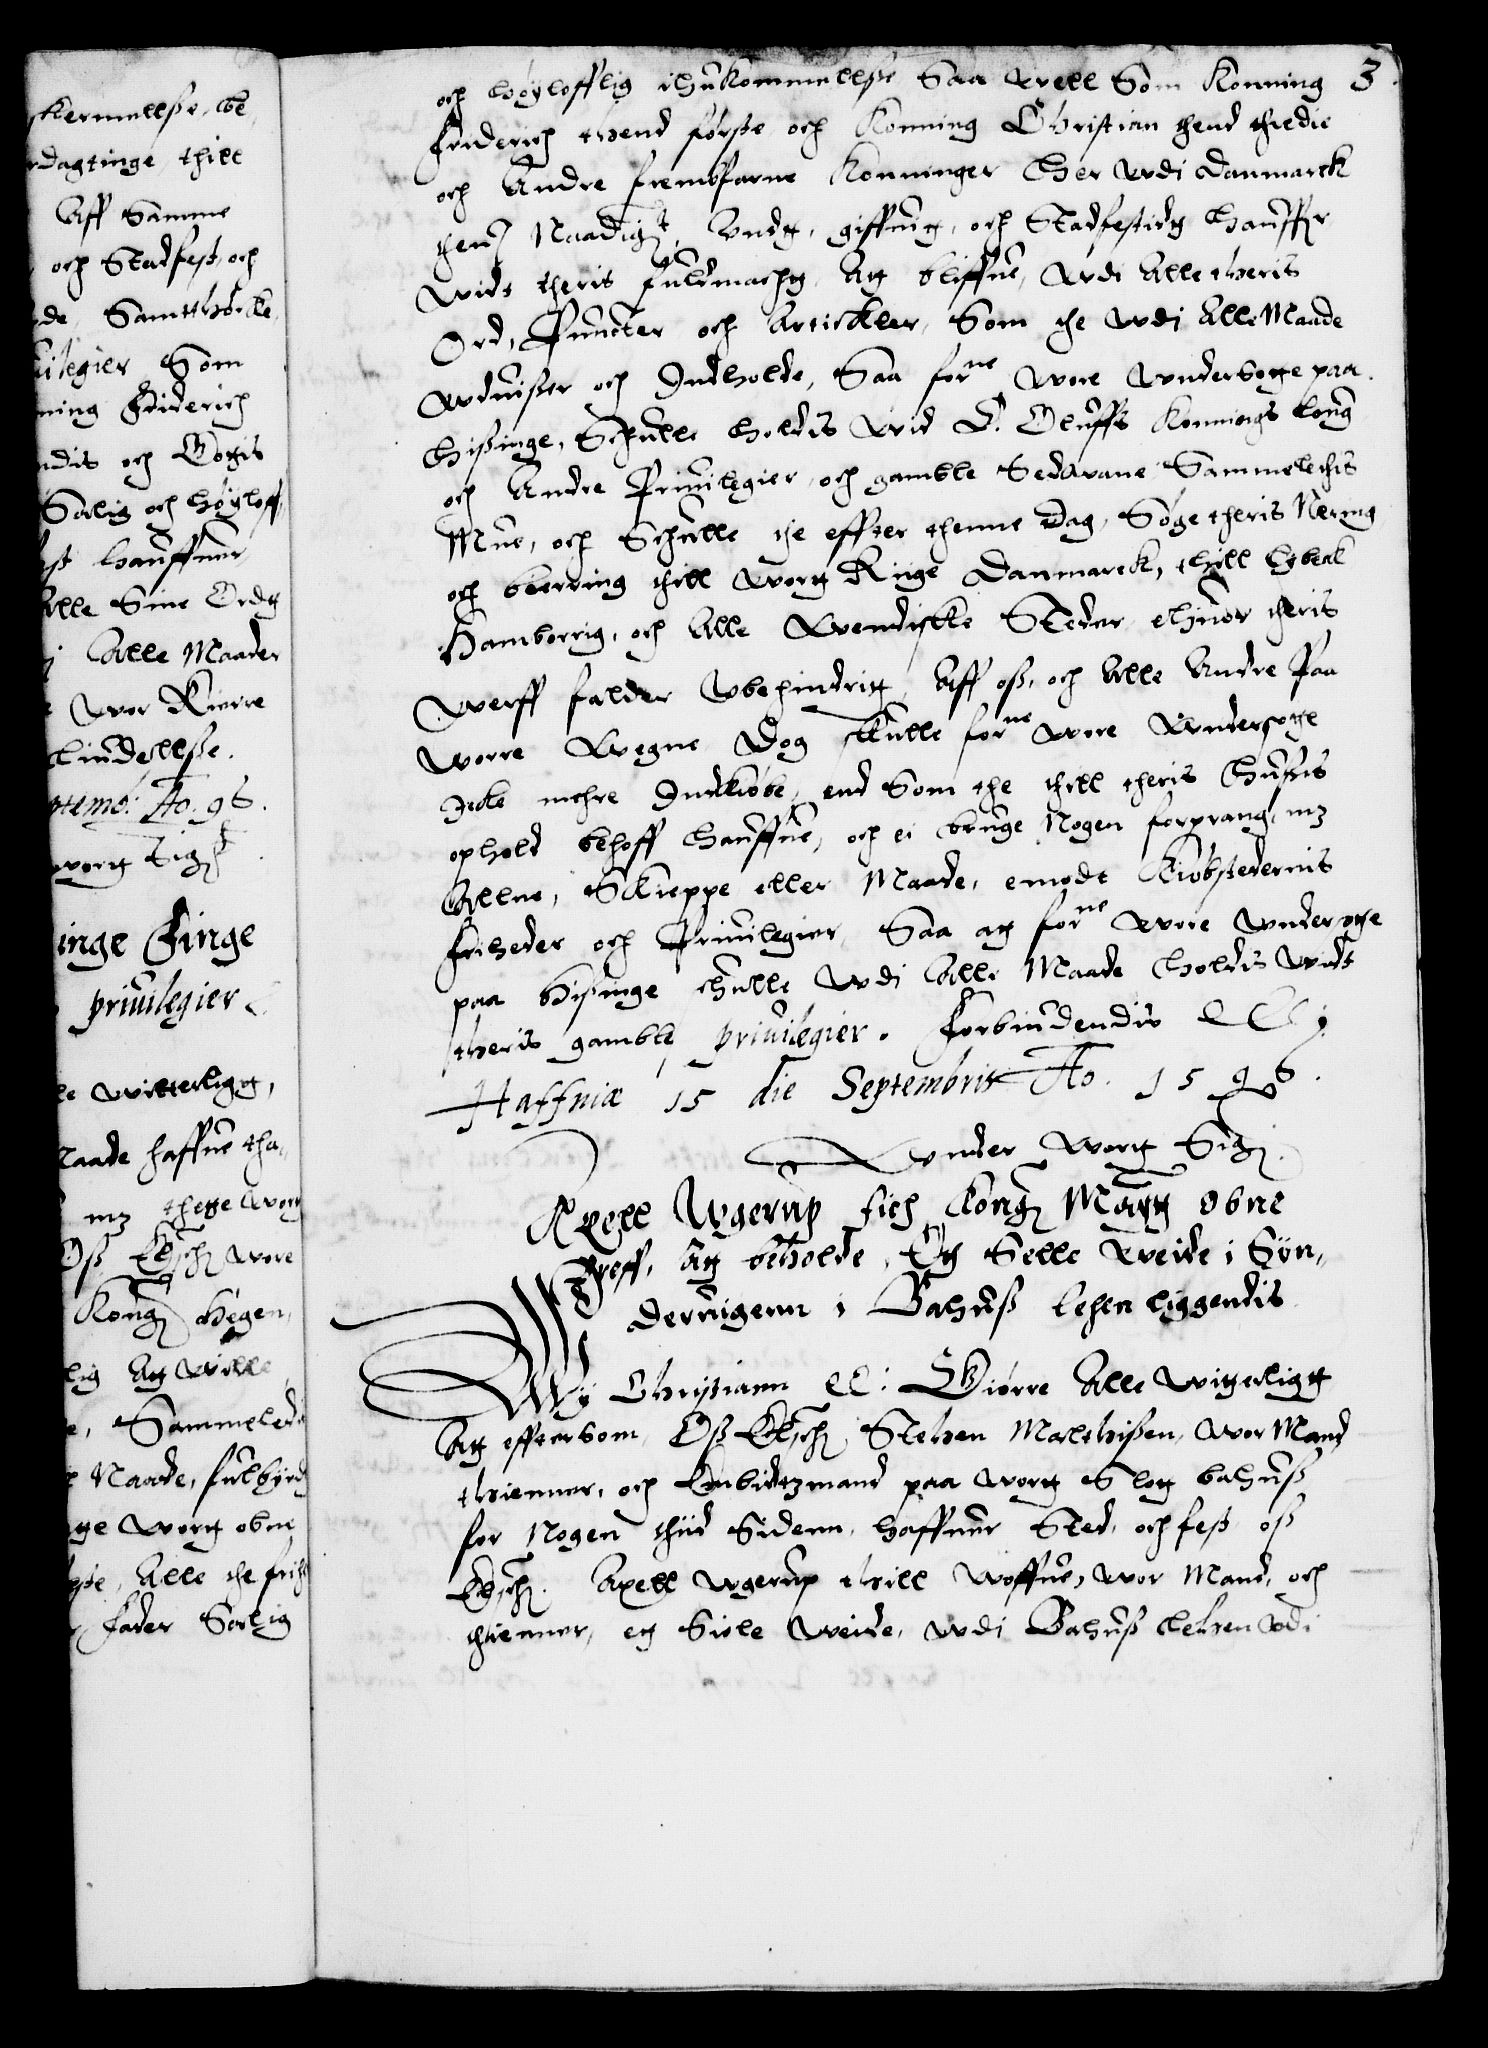 skermellsse, be,
rdagtinge, thill
Aff Samme
och Stadfest, och
de, Samtthöcke,
uilegier, Som
ning Friderich
ndis och Gotzis
Salig och höyloff,
st hauffuer
Alle Sine Ordt
j Alle Maader
wor Kierre
kiundellsse.
ptemb: Ao. 96.
wort Sig
inge Finge
priuilegier
le witterligt,
Naade haffue tha,
mz thette wort
Oss Elsch wore
Kong hegen,
lig At wille
e, Sammeled
Naade, fulbyrd
ge wort obne
sse, Alle the frih
Fader Salig
3.
och höylofflig ihukommellsse Saa well Som Konning
Friderich thend förste och Konning Christian thend thredie
och Andre frembfarne Konninger her wdi Danmarck
them Naadigst Undt, giffuit, och Stadfestidt hauffer
wids theris fuldmacht, At bliffue, wdi Alle theris
Ord, Puncter och Artickler, Som the wdi Alle Maade
wduisser och Indholde, Saa forne wore wndersotte paa
Hissinge, Schulle holdis wid S. Oluffs Konnings Loug
och Andre Priuilegier, och gamble Sedwane Sammeledis
Mue, och Schulle the effter thenne Dag, Söge theris Nering
och biering thill wort Rige Danmarck, thill Lybeck
Hamborrig, och Alle Wendiske Steder, ehuor theris
werff falder Ubehindrit, Aff oss, och Alle Andre paa
worre Wegne Dog skulle forne wore Undersotte
Icke mehre Indkiöbe, end Som the thill theris Hussis
ophold behoff hauffue, och ei bruge Nogen forprang, mz
Allne, Skieppe eller Maade, emodt Kiöbstedernis
friheder och Priuilegier, Saa at forne wore wndersotte
paa Hissinge schulle wdi Alle Maade holdis widt
theris gamble priuilegier. Forbiudendis etc
Haffniæ 15 die Septembris Ao. 1596.
under wort Sig
Axell Ugerup fich Kong Maytt obne
breff, At beholde, Et Selle weide i Syn,
deruigenn i Bahuss Lehen liggendis
Wy Christiann etc: Giörre Alle witterligt
At effterSom, Oss Elsch Stehen Malthissen, wor Mand
thienner, och Embidtzmand paa wort Slot bahuss
for Nogen thiid Sidenn, haffuer Sted, och fest oss
Elsch Axell ugerup thill woffue, wor Mand, och
thienner, et Siele weide, wdi Bahuss Lehen wdi